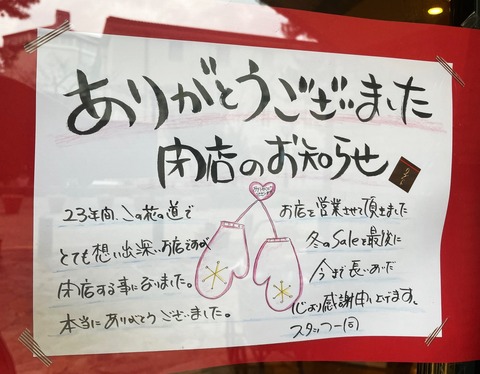 ありがとうございました
閉店のお知らせ
23年間、この花の道で
お店を営業させて頂きました
とても想い出深いお店ですが
冬のSaleを最後に
閉店する事になりました。
今まで長いあいだ
本当にありがとうございました。
心より感謝申し上げます。
スタッフ一同